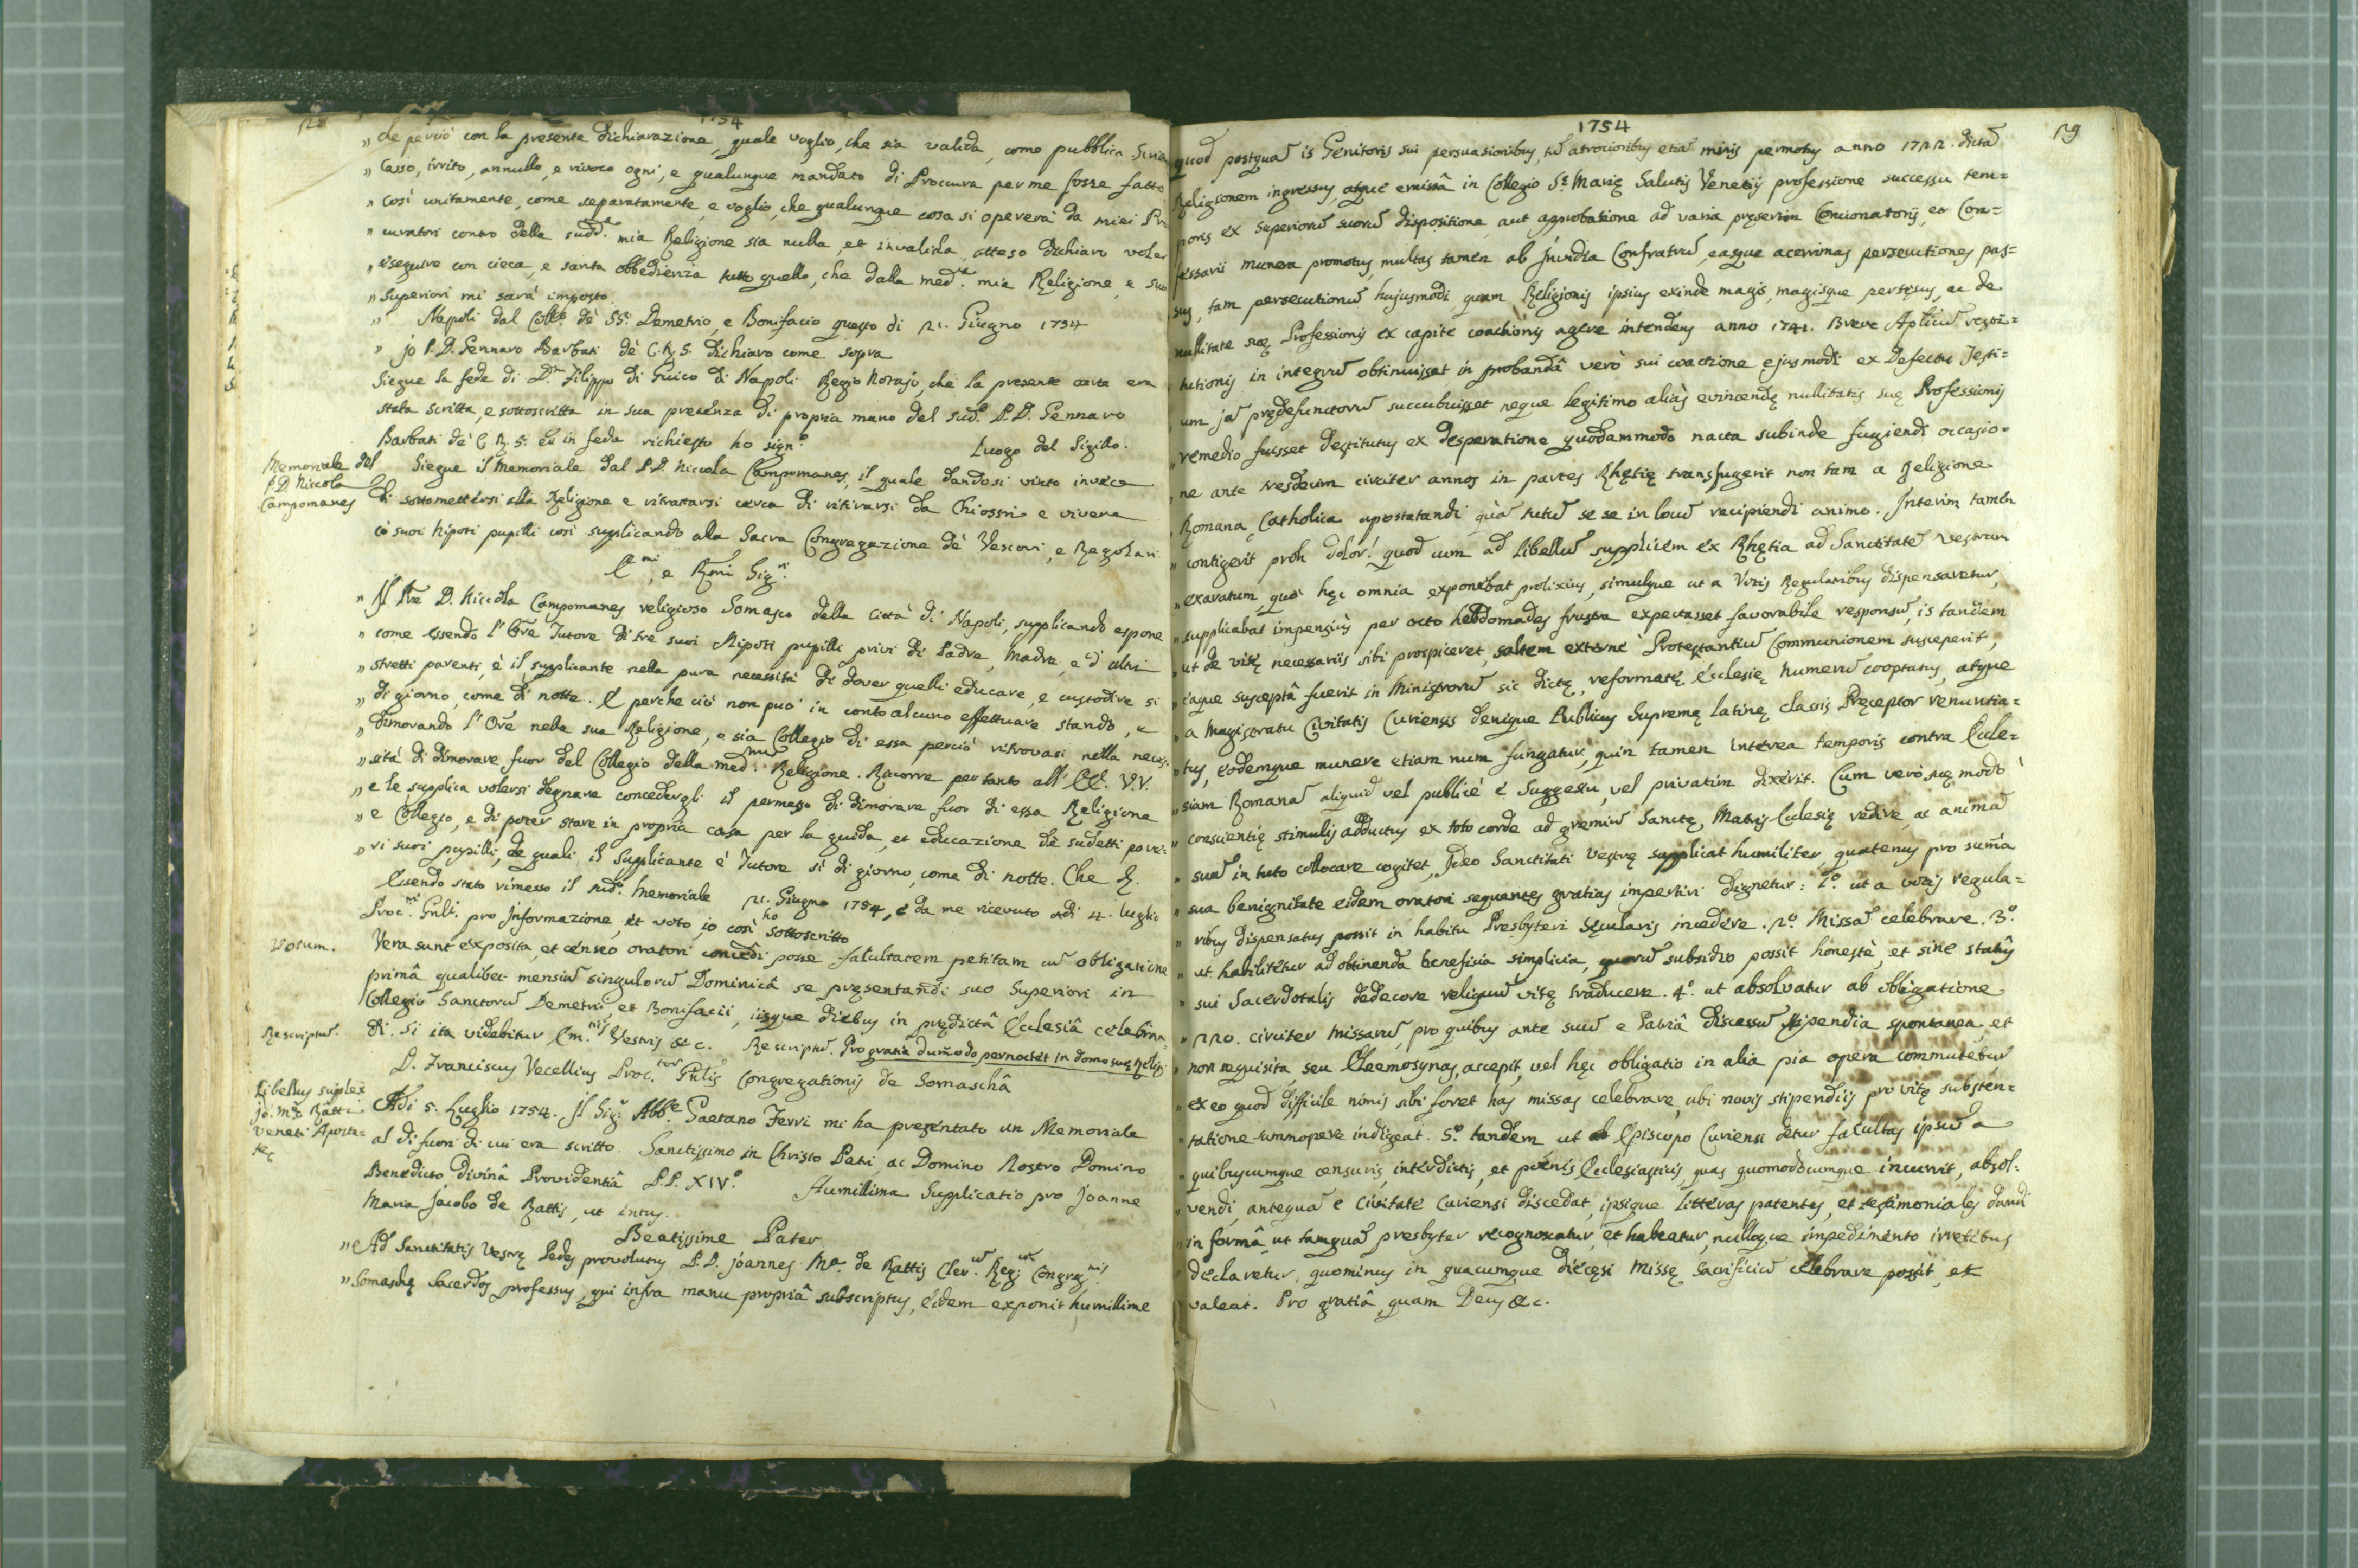 28
1754
„ che perciò con la presente dichiarazione, quale voglio, che sia valida, come pubblica
„ Casso, irrito, annullo, e rivoco ogni, e qualunque mandato di Proccura per me fosse fatto
„ così unitamente, come separatamente, e voglio, che qualunque cosa si opererà da miei Pro
„ curatori contro della sudd.ª mia Religione sia nulla, et invalida, atteso dichiaro voler
„ eseguire con cieca, e santa obbedienza tutto quello, che dalla med.ª mia Religione, e suoi
„ Superiori mi sarà imposto.
„ Napoli dal Coll.º dè SS.ⁱ Demetrio, e Bonifacio questo dì 21. Giugno 1754
„ jo P. D. Gennaro Barbati dè C. R. S. dichiaro come sopra
Siegue la fede di D.ⁿ Filippo di Guico di Napoli Regio Notajo, che la presente carta era
stata scritta, e sottoscritta in sua presenza di propria mano del sud.º P. D. Gennaro
Barbati dè C. R. S. ed in fede richiesto ho sign.º Luogo del Sigillo.
Memoriale del
P. D. Niccola
Campomanes
Siegue il Memoriale dal P. D. Niccola Campomanes, il quale dandosi vinto invece
di sottomettersi alla Religione e ritrattarsi cerca di ritirarsi da Chiostri e vivere
cò suoi Nipoti pupilli così supplicando alla Sacra Congregazione dè Vescovi, e Regolari
E.mi, e R.mi Sig.ri
„ Il Pre D. Niccola Campomanes religioso Somasco della Città di Napoli, supplicando espone
„ come essendo l'Ore Tutore di tre suoi Nipoti pupilli privi di Padre, Madre, e d'altri
„ stretti parenti, è il supplicante nella pura necessità di dover quelli educare, e custodire sì
„ di giorno, come di notte. E perche ciò non può in conto alcuno effettuare stando, e
„ dimorando l'Ore nella sua Religione, o sia Collegio di essa perciò ritrovasi nella neces-
„ sità di dimorare fuor del Collegio della med.ma Religione. Ricorre per tanto all' EE. VV.
„ e le supplica volersi degnare concedergli il permesso di dimorare fuor di essa Religione
„ e Collegio, e di poter stare in propria casa per la guida, et educazione dè sudetti pove-
„ ri suoi pupilli, de quali il Supplicante è Tutore sì di giorno, come di notte. Che &.
Essendo stato rimesso il sud.º Memoriale 21. Giugno 1754, è da me ricevuto adì 4. luglio
Proc.ri Gnli. pro Informazione, et voto, io così ho sottoscritto
Votum.
Vera sunt exposita, et censeo oratori concedi posse facultatem petitam cū obligatione
primâ qualibet mensiū singulorū Dominicâ se præsentandi suo Superiori in
Collegio Sanctorū Demetrii et Bonifacii, iisque diebus in prædictâ Ecclesiâ celebran-
Rescriptū.
di. Si ita videbitur Em.nijs Vestris &c. Rescriptū. Pro gratia dum̄odo pernoctet in domo suę Relig:
D. Franciscus Vecellius Proc.tor Gnlis Congregationis de Somaschâ
Libellus suplex
Jo: M.ę Rattis
Veneti Aposta-
tę
Adi 5. Luglio 1754. Il Sig.r Abb.e Gaetano Ferri mi ha presentato un Memoriale
al di fuori di cui era scritto. Sanctissimo in Christo Patri, ac Domino Nostro Domino
Benedicto Divinâ Providentiâ P. P. XIV.º Humillima Supplicatio pro Joanne
Maria Jacobo de Rattis, ut intus.
Beatissime Pater
„ Ad Sanctitatis Vestrę Pedes provolutus P. D. Joannes M.ª de Rattis Cler.ū Reg: Congreg.nis
„ Somaschę Sacerdos professus, qui infra manu propriâ subscriptus, eidem exponit humillime
29
1754
quod postquā is Genitoris sui persuasionibus, tū atrocioribus etiā minis permotus anno 1722. dictā
Religionem ingressus, atque emissâ in Collegio S.ę Marię Salutis Venetijs professione successu tem-
poris ex Superiorū suorū dispositione aut approbatione ad varia pręsertim Concionatorij, et Con-
fessarii munera promotus, multas tamen ab Invidia Confratrū, easque acerrimas persecutiones pas-
sus, tam persecutionū hujusmodi quam Religionis ipsius exinde magis, magisque pertęsus, ac de
nullitate suę Professionis ex capite coactionis agere intendens anno 1741. Breve Aplicū resti-
tutionis in integrū obtinuisset in probandâ verò sui coactione ejusmodi ex defectu Testi-
um jā prędefunctorū succubuisset neque legitimo aliàs evincendę nullitatis suę Professionis
„ remedio fuisset destitutus ex desperatione quodammodo nacta subinde fugiendi occasio-
„ ne ante tresdecim circiter annos in partes Rhętię transfugerit non tam a Religione
„ Romana Catholica apostatandi quā tutū se se in locū recipiendi animo. Interim tamen
„ contigerit proh dolor! quod cum ad libellū supplicem ex Rhętia ad Sanctitatē Vestram
„ exaratum, quo hęc omnia exponebat prolixius, simulque ut a Votis Regularibus dispensaretur,
„ supplicabat impensiùs per octo hebdomades frustra expectasset favorabile responsū, is tandem
„ ut de vitę necessariis sibi prospiceret, saltem externè Protestantiū Communionem susceperit,
„ eaque susceptâ fuerit in Ministrorū sic dictę, reformatę Ecclesię numerū cooptatus, atque
„ a Magistratu Civitatis Curiensis denique Publicus Supremę latinę classis Pręceptor renuntia-
„ tus, eodemque munere etiam num fungatur, quin tamen interea temporis contra Eccle-
„ siam Romanā aliquid vel publicè è Suggestu, vel privatim dixerit. Cum verò suę modò
„ conscientię stimulis adductus ex toto corde ad gremiū Sanctę Matris Eclesię redire, ac animā
„ suā in tuto collocare cogitet, Ideo Sanctitati Vestrę supplicat humiliter, quatenus pro sum̄a
„ sua benignitate eidem oratori sequentes gratias impertiri dignetur: 1.º ut a votis regula-
„ ribus dispensatus possit in habitu Presbyteri Sęcularis incedere. 2.º Missā celebrare. 3.º
„ ut habilitetur ad obtinenda beneficia simplicia, quorū subsidio possit honestè, et sine statûs
„ sui Sacerdotalis dedecore reliquū vitę traducere. 4.º ut absolvatur ab obligatione
„ 220. circiter Missarū, pro quibus ante suū e Patriâ discessū stipendia spontanea, et
„ non requisita, seu Eleemosynas, accepit, vel hęc obligatio in alia pia opera commutetur
„ ex eo quod difficile nimis sibi foret has missas celebrare, ubi novis stipendijs pro vitę susten-
„ tatione summopere indigeat. 5.º tandem ut ab Episcopo Curiensi detur facultas ipsū a
„ quibuscumque censuris, interdictis, et pœnis Ecclesiasticis, quas quomodocumque incurrit, absol-
„ vendi, antequā è Civitate Curiensi discedat, ipsique litteras patentes, et testimoniales dandi
„ in formâ, ut tamquā presbyter recognoscatur, et habeatur, nulloque impedimento irretitus
„ declaretur, quominus in quacumque diecęsi Missę Sacrificiū celebrare possit, et
„ valeat. Pro gratiâ, quam Deus &c.